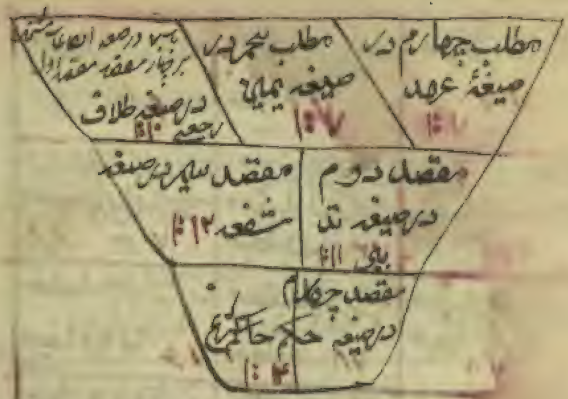 مطلب چهارم در
صیغهٔ عهد
مطلب پنجم در
صیغه یمین
باب در صیغه
بر چهار مقصد مقصد اول
در صیغه طلاق
رجعی
مقصد دوم
در صیغه
مقصد سیم در صیغه
شفعه ۱۲
مقصد چهارم
در صیغه حکم حاکم شرع